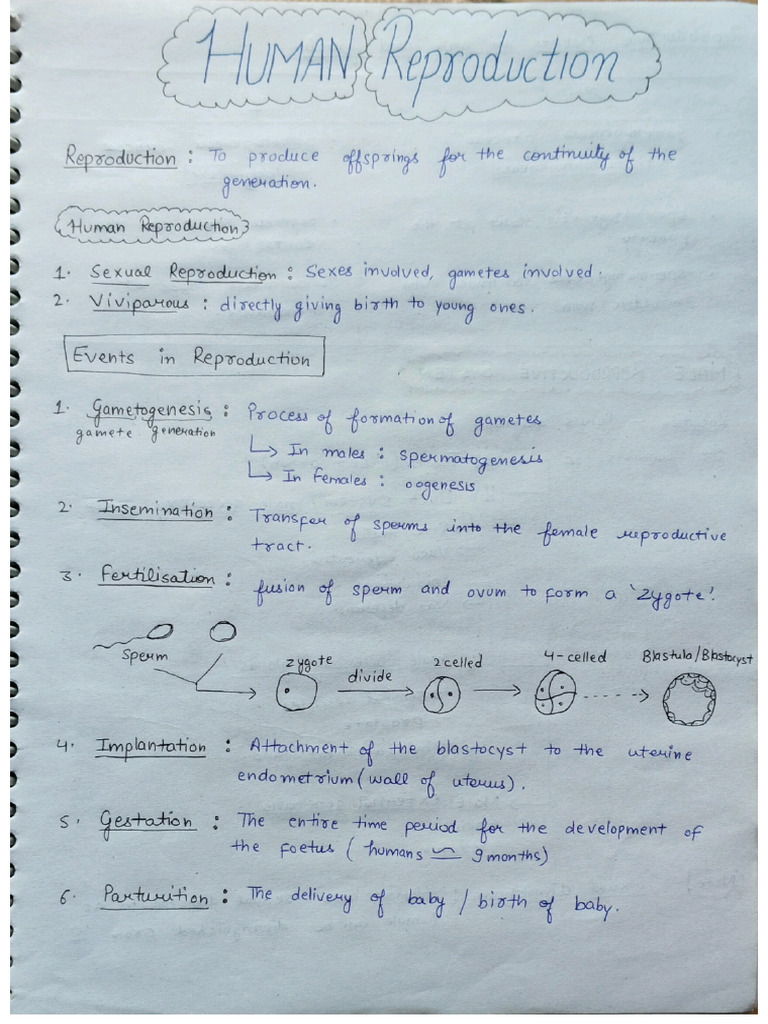 HUMAN Reproduction
Reproduction : To produce offsprings for the continuity of the
generation.
Human Reproduction
1. Sexual Reproduction : Sexes involved, gametes involved.
2. Viviparous : directly giving birth to young ones.
Events in Reproduction
1. Gametogenesis : Process of formation of gametes
gamete generation
↳ In males : spermatogenesis
↳ In females : oogenesis
2. Insemination : Transfer of sperms into the female reproductive
tract.
3. Fertilisation : fusion of sperm and ovum to form a 'zygote'.
sperm
zygote
divide
2 celled
4-celled
Blastula/Blastocyst
4. Implantation : Attachment of the blastocyst to the uterine
endometrium (wall of uterus).
5. Gestation : The entire time period for the development of
the foetus ( humans ≃ 9 months)
6. Parturition : The delivery of baby / birth of baby.